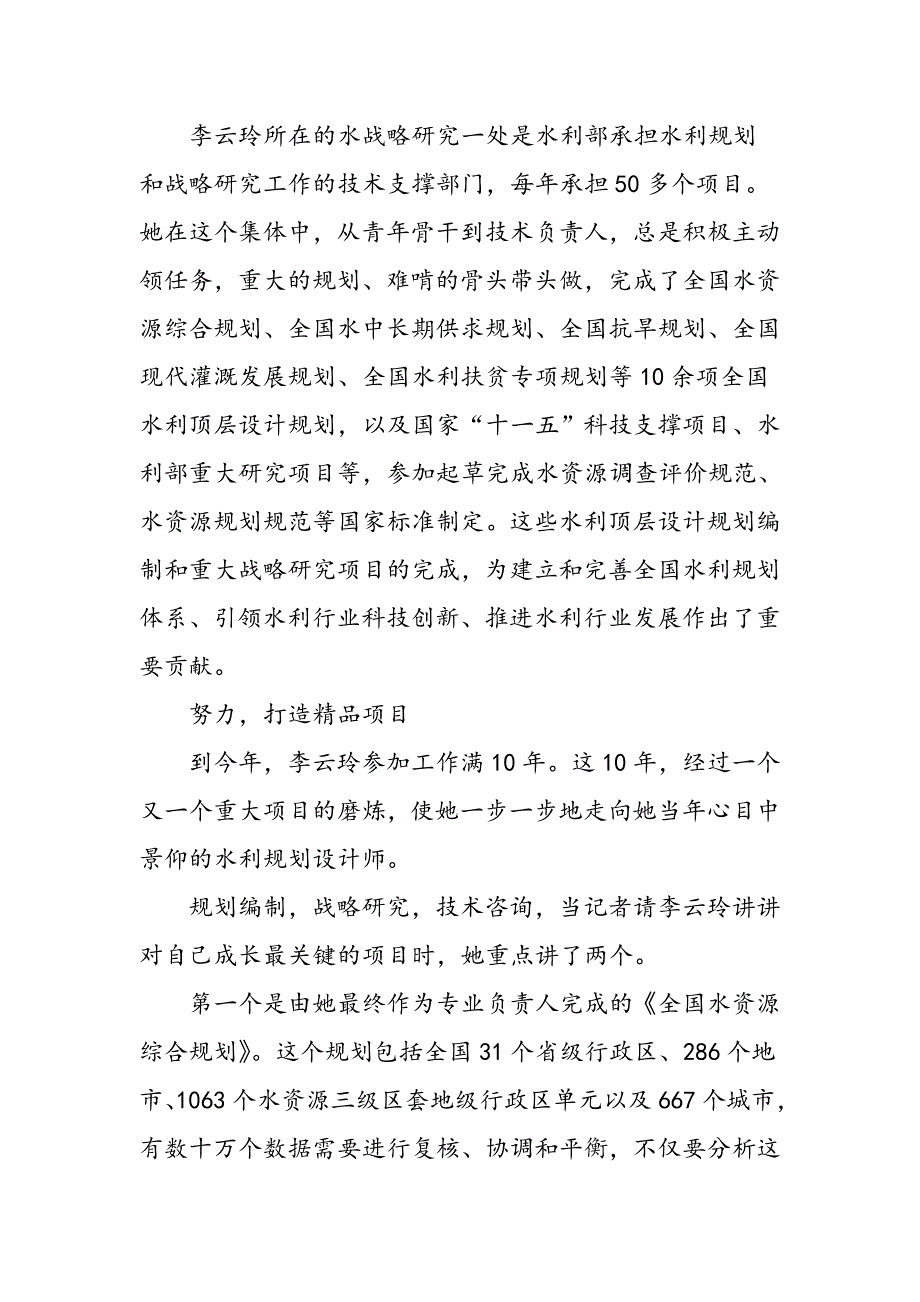 李云玲所在的水战略研究一处是水利部承担水利规划
和战略研究工作的技术支撑部门，每年承担50多个项目。
她在这个集体中，从青年骨干到技术负责人，总是积极主动
领任务，重大的规划、难啃的骨头带头做，完成了全国水资
源综合规划、全国水中长期供求规划、全国抗旱规划、全国
现代灌溉发展规划、全国水利扶贫专项规划等10余项全国
水利顶层设计规划，以及国家“十一五”科技支撑项目、水
利部重大研究项目等，参加起草完成水资源调查评价规范、
水资源规划规范等国家标准制定。这些水利顶层设计规划编
制和重大战略研究项目的完成，为建立和完善全国水利规划
体系、引领水利行业科技创新、推进水利行业发展作出了重
要贡献。
努力，打造精品项目
到今年，李云玲参加工作满10年。这10年，经过一个
又一个重大项目的磨炼，使她一步一步地走向她当年心目中
景仰的水利规划设计师。
规划编制，战略研究，技术咨询，当记者请李云玲讲讲
对自己成长最关键的项目时，她重点讲了两个。
第一个是由她最终作为专业负责人完成的《全国水资源
综合规划》。这个规划包括全国31个省级行政区、286个地
市、1063个水资源三级区套地级行政区单元以及667个城市，
有数十万个数据需要进行复核、协调和平衡，不仅要分析这